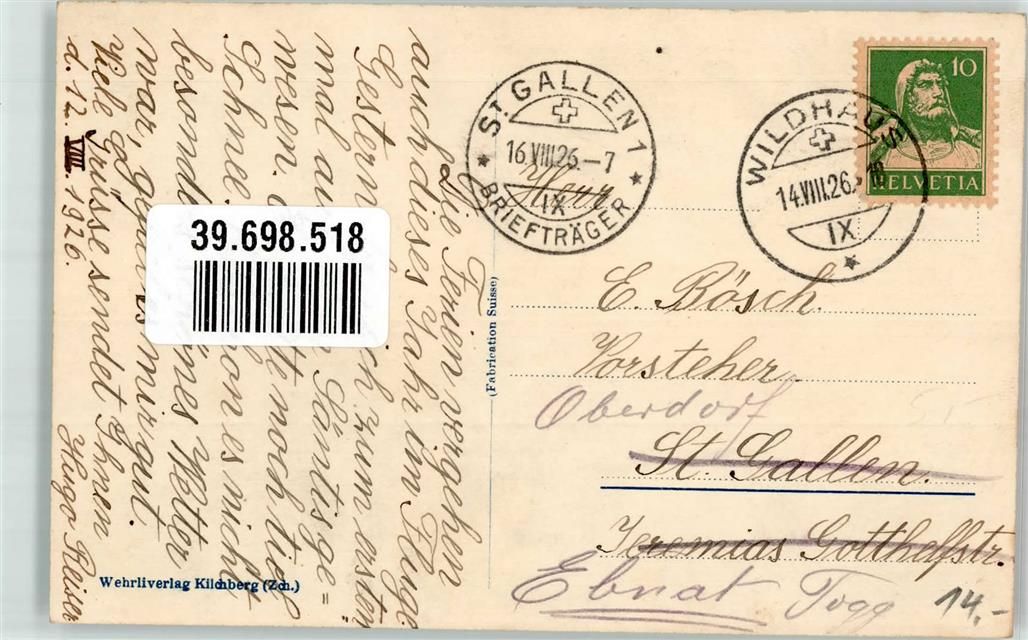 Die Ferien vergehen
auch dieses Jahr im Fluge
Gestern ich zum ersten
mal au Säntis ge=
wesen. te noch tief
Schnee. on es nicht
besond nes Wetter
war, g s mir gut.
Viele Grüsse sendet Ihnen
d. 12. VIII. 1926. Hugo Reiser
39.698.518
Wehrliverlag Kilchberg (Zch.)
(Fabrication Suisse)
ST. GALLEN 1
16.VIII.26.–7
IX
BRIEFTRÄGER
WILDHAUS
14.VIII.26.
18
IX
10
HELVETIA
Herr
E. Bösch.
Vorsteher
Oberdorf
St. Gallen.
Jeremias Gotthelfstr.
Ebnat Togg
14.-